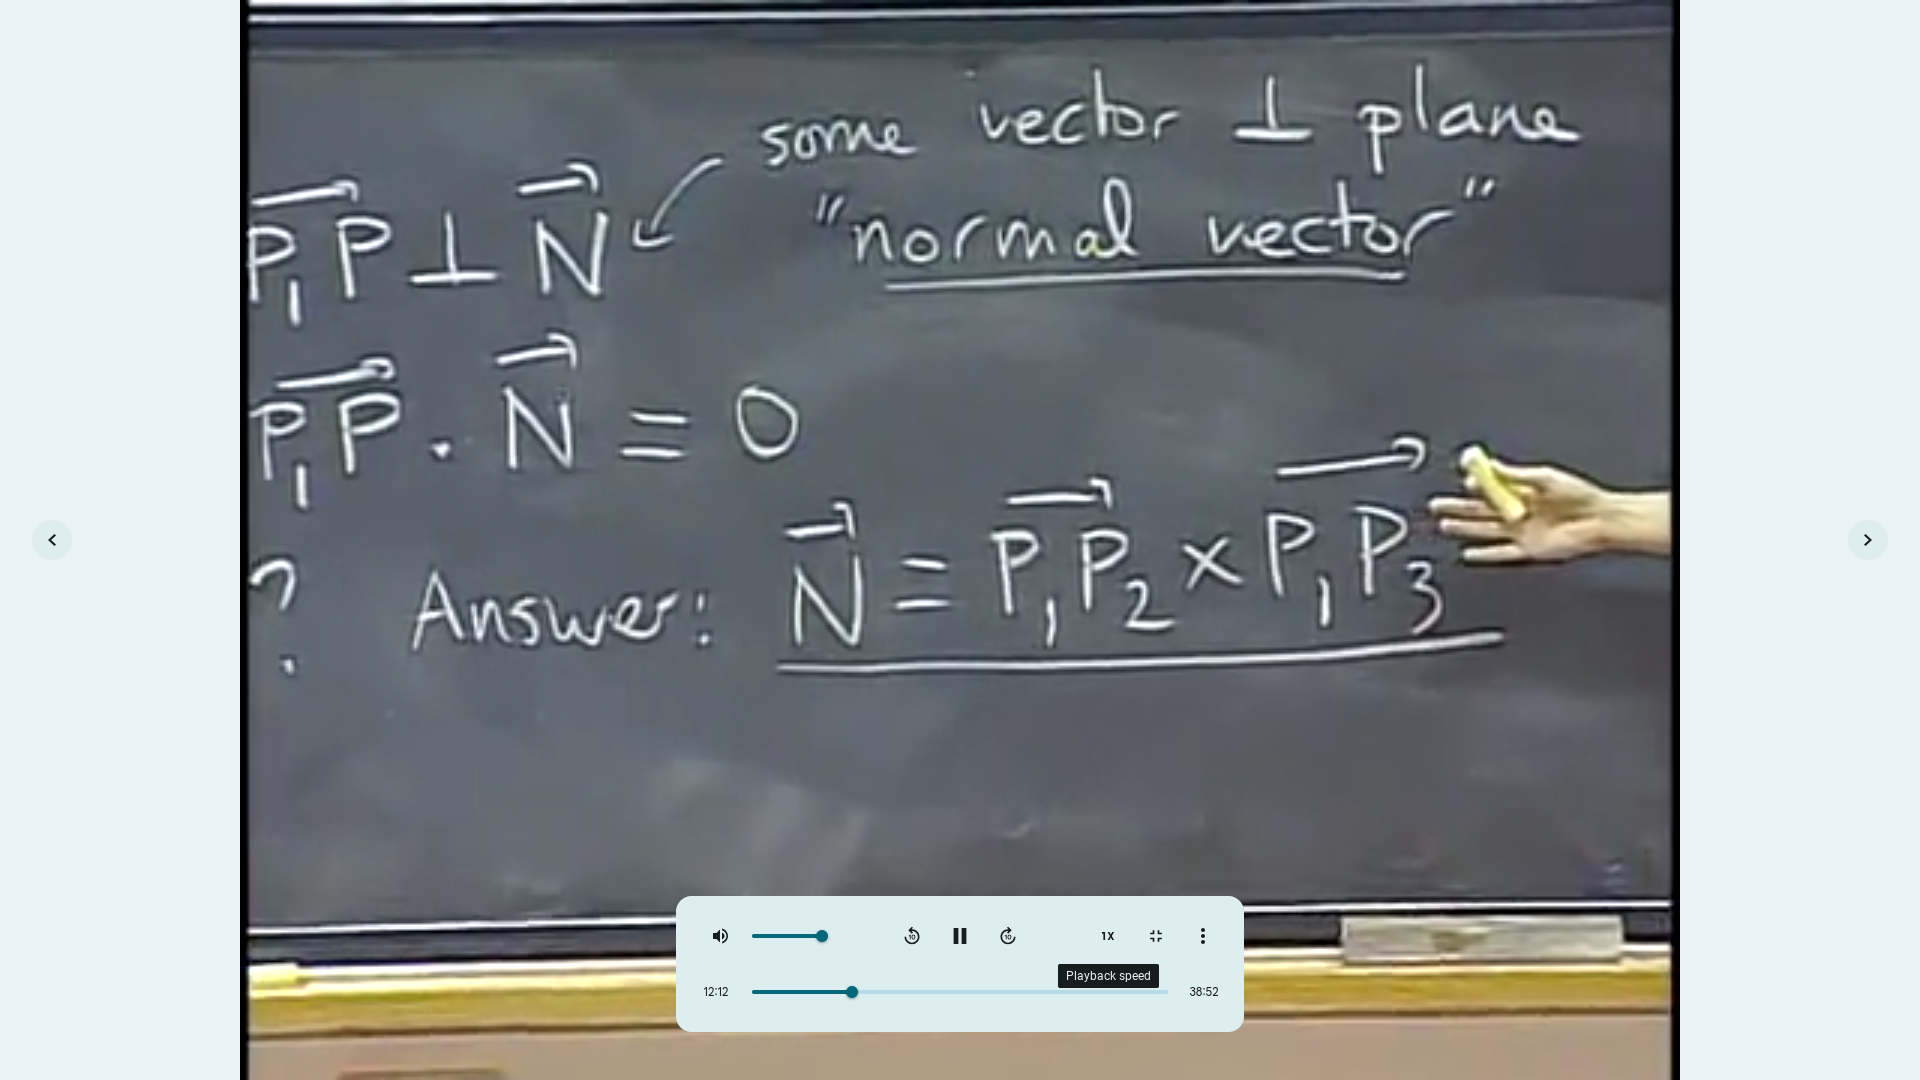 some vector ⊥ plane
P₁P ⊥ N
"normal vector"
P₁P · N = 0
? Answer: N = P₁P₂ × P₁P₃
10 10 1X
Playback speed
12:12 38:52